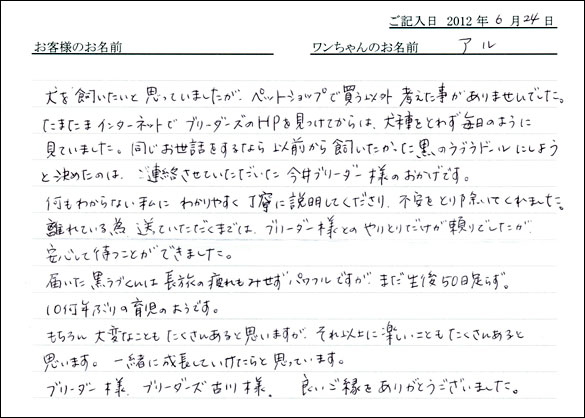 ご記入日 2012 年 6 月 24 日
お客様のお名前 ワンちゃんのお名前 アル
犬を飼いたいと思っていましたが、ペットショップで買う以外考えた事がありませんでした。
たまたまインターネットでブリーダーズのHPを見つけてからは、犬種をとわず毎日のように
見ていました。同じお世話をするなら以前から飼いたかった黒のラブラドールにしよう
と決めたのは、ご連絡させていただいた今井ブリーダー様のおかげです。
何もわからない私にわかりやすく丁寧に説明してくださり、不安をとり除いてくれました。
離れている為、送っていただくまでは、ブリーダー様とのやりとりだけが頼りでしたが、
安心して待つことができました。
届いた黒ラブくんは長旅の疲れもみせずパワフルですが、まだ生後50日足らず。
10何年ぶりの育児のようです。
もちろん大変なこともたくさんあると思いますが、それ以上に楽しいこともたくさんあると
思います。一緒に成長していけたらと思っています。
ブリーダー様、ブリーダーズ古川様、良いご縁をありがとうございました。